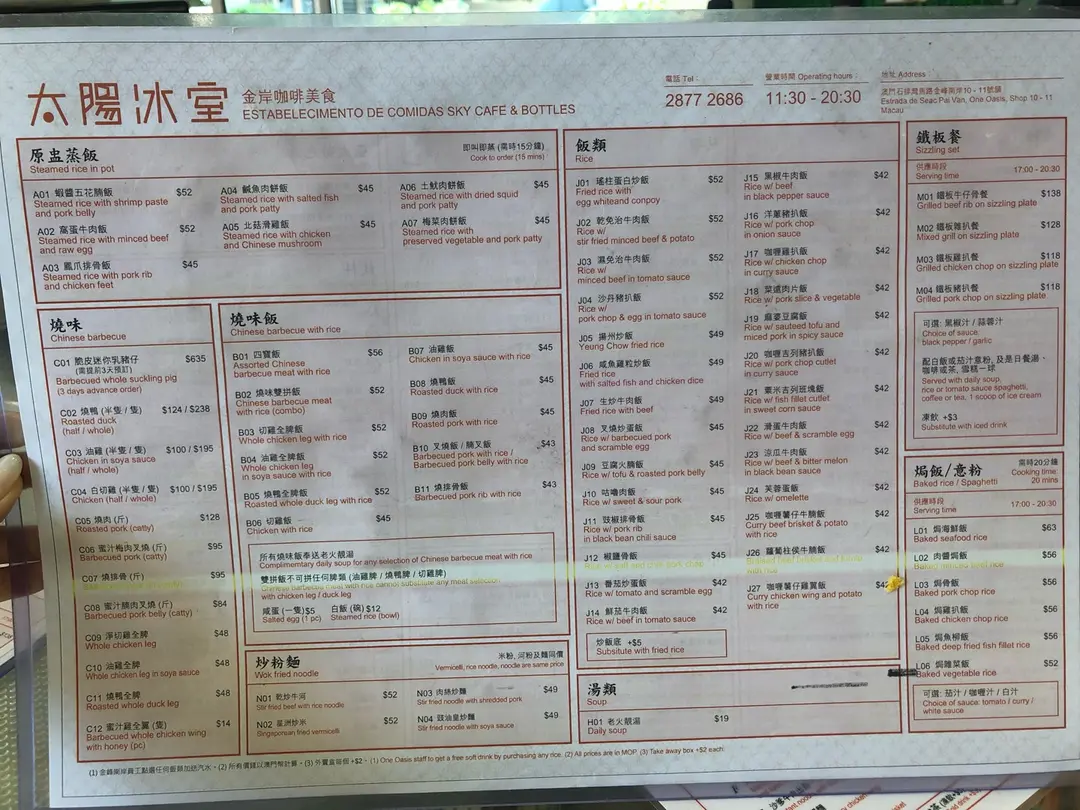 太陽冰室
金岸咖啡美食
ESTABELECIMENTO DE COMIDAS SKY CAFE & BOTTLES
電話 Tel :
2877 2686
營業時間 Operating hours :
11:30 - 20:30
地址 Address
澳門石排灣馬路金峰南岸10 - 11號舖
Estrada de Seac Pai Van, One Oasis, Shop 10 - 11
Macau
原盅蒸飯
Steamed rice in pot
即叫即蒸 (需時15分鐘)
Cook to order (15 mins)
A01 蝦醬五花腩飯 $52
Steamed rice with shrimp paste
and pork belly
A02 窩蛋牛肉飯 $52
Steamed rice with minced beef
and raw egg
A03 鳳爪排骨飯 $45
Steamed rice with pork rib
and chicken feet
A04 鹹魚肉餅飯 $45
Steamed rice with salted fish
and pork patty
A05 北菇滑雞飯 $45
Steamed rice with chicken
and Chinese mushroom
A06 土魷肉餅飯 $45
Steamed rice with dried squid
and pork patty
A07 梅菜肉餅飯 $45
Steamed rice with
preserved vegetable and pork patty
燒味
Chinese barbecue
C01 脆皮迷你乳豬仔 $635
(需提前3天預訂)
Barbecued whole suckling pig
(3 days advance order)
C02 燒鴨 (半隻 / 隻) $124 / $238
Roasted duck
(half / whole)
C03 油雞 (半隻 / 隻) $100 / $195
Chicken in soya sauce
(half / whole)
C04 白切雞 (半隻 / 隻) $100 / $195
Chicken (half / whole)
C05 燒肉 (斤) $128
Roasted pork (catty)
C06 蜜汁梅肉叉燒 (斤) $95
Barbecued pork (catty)
C07 燒排骨 (斤) $95
Barbecued pork rib (catty)
C08 蜜汁腩肉叉燒 (斤) $84
Barbecued pork belly (catty)
C09 淨切雞全髀 $48
Whole chicken leg
C10 油雞全髀 $48
Whole chicken leg in soya sauce
C11 燒鴨全髀 $48
Roasted whole duck leg
C12 蜜汁雞全翼 (隻) $14
Barbecued whole chicken wing
with honey (pc)
燒味飯
Chinese barbecue with rice
B01 四寶飯 $56
Assorted Chinese
barbecue meat with rice
B02 燒味雙拼飯 $52
Chinese barbecue meat
with rice (combo)
B03 切雞全髀飯 $52
Whole chicken leg with rice
B04 油雞全髀飯 $52
Whole chicken leg
in soya sauce with rice
B05 燒鴨全髀飯 $52
Roasted whole duck leg with rice
B06 切雞飯 $45
Chicken with rice
B07 油雞飯 $45
Chicken in soya sauce with rice
B08 燒鴨飯 $45
Roasted duck with rice
B09 燒肉飯 $45
Roasted pork with rice
B10 叉燒飯 / 腩叉飯 $43
Barbecued pork with rice /
Barbecued pork belly with rice
B11 燒排骨飯 $43
Barbecued pork rib with rice
所有燒味飯奉送老火靚湯
Complimentary daily soup for any selection of Chinese barbecue meat with rice
雙拼飯不可拼任何髀類 (油雞髀 / 燒鴨髀 / 切雞髀)
Chinese barbecue meat with rice cannot substitute any meat selection
with chicken leg / duck leg
咸蛋 (一隻) $5 白飯 (碗) $12
Salted egg (1 pc) Steamed rice (bowl)
炒粉麵
Wok fried noodle
米粉, 河粉及麵同價
Vermicelli, rice noodle, noodle are same price
N01 乾炒牛河 $52
Stir fried beef with rice noodle
N02 星洲炒米 $52
Singaporean fried vermicelli
N03 肉絲炒麵 $49
Stir fried noodle with shredded pork
N04 豉油皇炒麵 $49
Stir fried noodle with soya sauce
飯類
Rice
J01 瑤柱蛋白炒飯 $52
Fried rice with
egg whiteand conpoy
J02 乾免治牛肉飯 $52
Rice w/
stir fried minced beef & potato
J03 濕免治牛肉飯 $52
Rice w/
minced beef in tomato sauce
J04 沙丹豬扒飯 $52
Rice w/
pork chop & egg in tomato sauce
J05 揚州炒飯 $49
Yeung Chow fried rice
J06 咸魚雞粒炒飯 $49
Fried rice
with salted fish and chicken dice
J07 生炒牛肉飯 $49
Fried rice with beef
J08 叉燒炒蛋飯 $45
Rice w/ barbecued pork
and scramble egg
J09 豆腐火腩飯 $45
Rice w/ tofu & roasted pork belly
J10 咕嚕肉飯 $45
Rice w/ sweet & sour pork
J11 豉椒排骨飯 $45
Rice w/ pork rib
in black bean chili sauce
J12 椒鹽骨飯 $45
Rice w/ salt and chili pork chop
J13 番茄炒蛋飯 $42
Rice w/ tomato and scramble egg
J14 鮮茄牛肉飯 $42
Rice w/ beef in tomato sauce
炒飯底 +$5
Subsitute with fried rice
J15 黑椒牛肉飯 $42
Rice w/ beef
in black pepper sauce
J16 洋蔥豬扒飯 $42
Rice w/ pork chop
in onion sauce
J17 咖喱雞扒飯 $42
Rice w/ chicken chop
in curry sauce
J18 菜遠肉片飯 $42
Rice w/ pork slice & vegetable
J19 麻婆豆腐飯 $42
Rice w/ sauteed tofu and
miced pork in spicy sauce
J20 咖喱吉列豬扒飯 $42
Rice w/ pork chop cutlet
in curry sauce
J21 粟米吉列班塊飯 $42
Rice w/ fish fillet cutlet
in sweet corn sauce
J22 滑蛋牛肉飯 $42
Rice w/ beef & scramble egg
J23 涼瓜牛肉飯 $42
Rice w/ beef & bitter melon
in black bean sauce
J24 芙蓉蛋飯 $42
Rice w/ omelette
J25 咖喱薯仔牛腩飯 $42
Curry beef brisket & potato
with rice
J26 蘿蔔柱侯牛腩飯 $42
with rice
J27 咖喱薯仔雞翼飯 $42
Curry chicken wing and potato
with rice
湯類
Soup
H01 老火靚湯 $19
Daily soup
鐵板餐
Sizzling set
供應時段 17:00 - 20:30
Serving time
M01 鐵板牛仔骨餐 $138
Grilled beef rib on sizzling plate
M02 鐵板雜扒餐 $128
Mixed grill on sizzling plate
M03 鐵板雞扒餐 $118
Grilled chicken chop on sizzling plate
M04 鐵板豬扒餐 $118
Grilled pork chop on sizzling plate
可選: 黑椒汁 / 蒜蓉汁
Choice of sauce:
black pepper / garlic
配白飯或茄汁意粉, 及是日餐湯,
咖啡或茶, 雪糕一球
Served with daily soup,
rice or tomato sauce spaghetti,
coffee or tea, 1 scoop of ice cream
凍飲 +$3
Substitute with iced drink
焗飯/意粉
Baked rice / Spaghetti
需時20分鐘
Cooking time:
20 mins
供應時段 17:00 - 20:30
Serving time
L01 焗海鮮飯 $63
Baked seafood rice
L02 肉醬焗飯 $56
Baked minced beef rice
L03 焗骨飯 $56
Baked pork chop rice
L04 焗雞扒飯 $56
Baked chicken chop rice
L05 焗魚柳飯 $56
Baked deep fried fish fillet rice
L06 焗雜菜飯 $52
Baked vegetable rice
可選: 茄汁 / 咖喱汁 / 白汁
Choice of sauce: tomato / curry /
white sauce
(1) 金峰南岸員工點選任何飯類加送汽水。(2) 所有價錢以澳門幣計算。(3) 外賣盒每個 +$2。(1) One Oasis staff to get a free soft drink by purchasing any rice. (2) All prices are in MOP. (3) Take away box +$2 each.